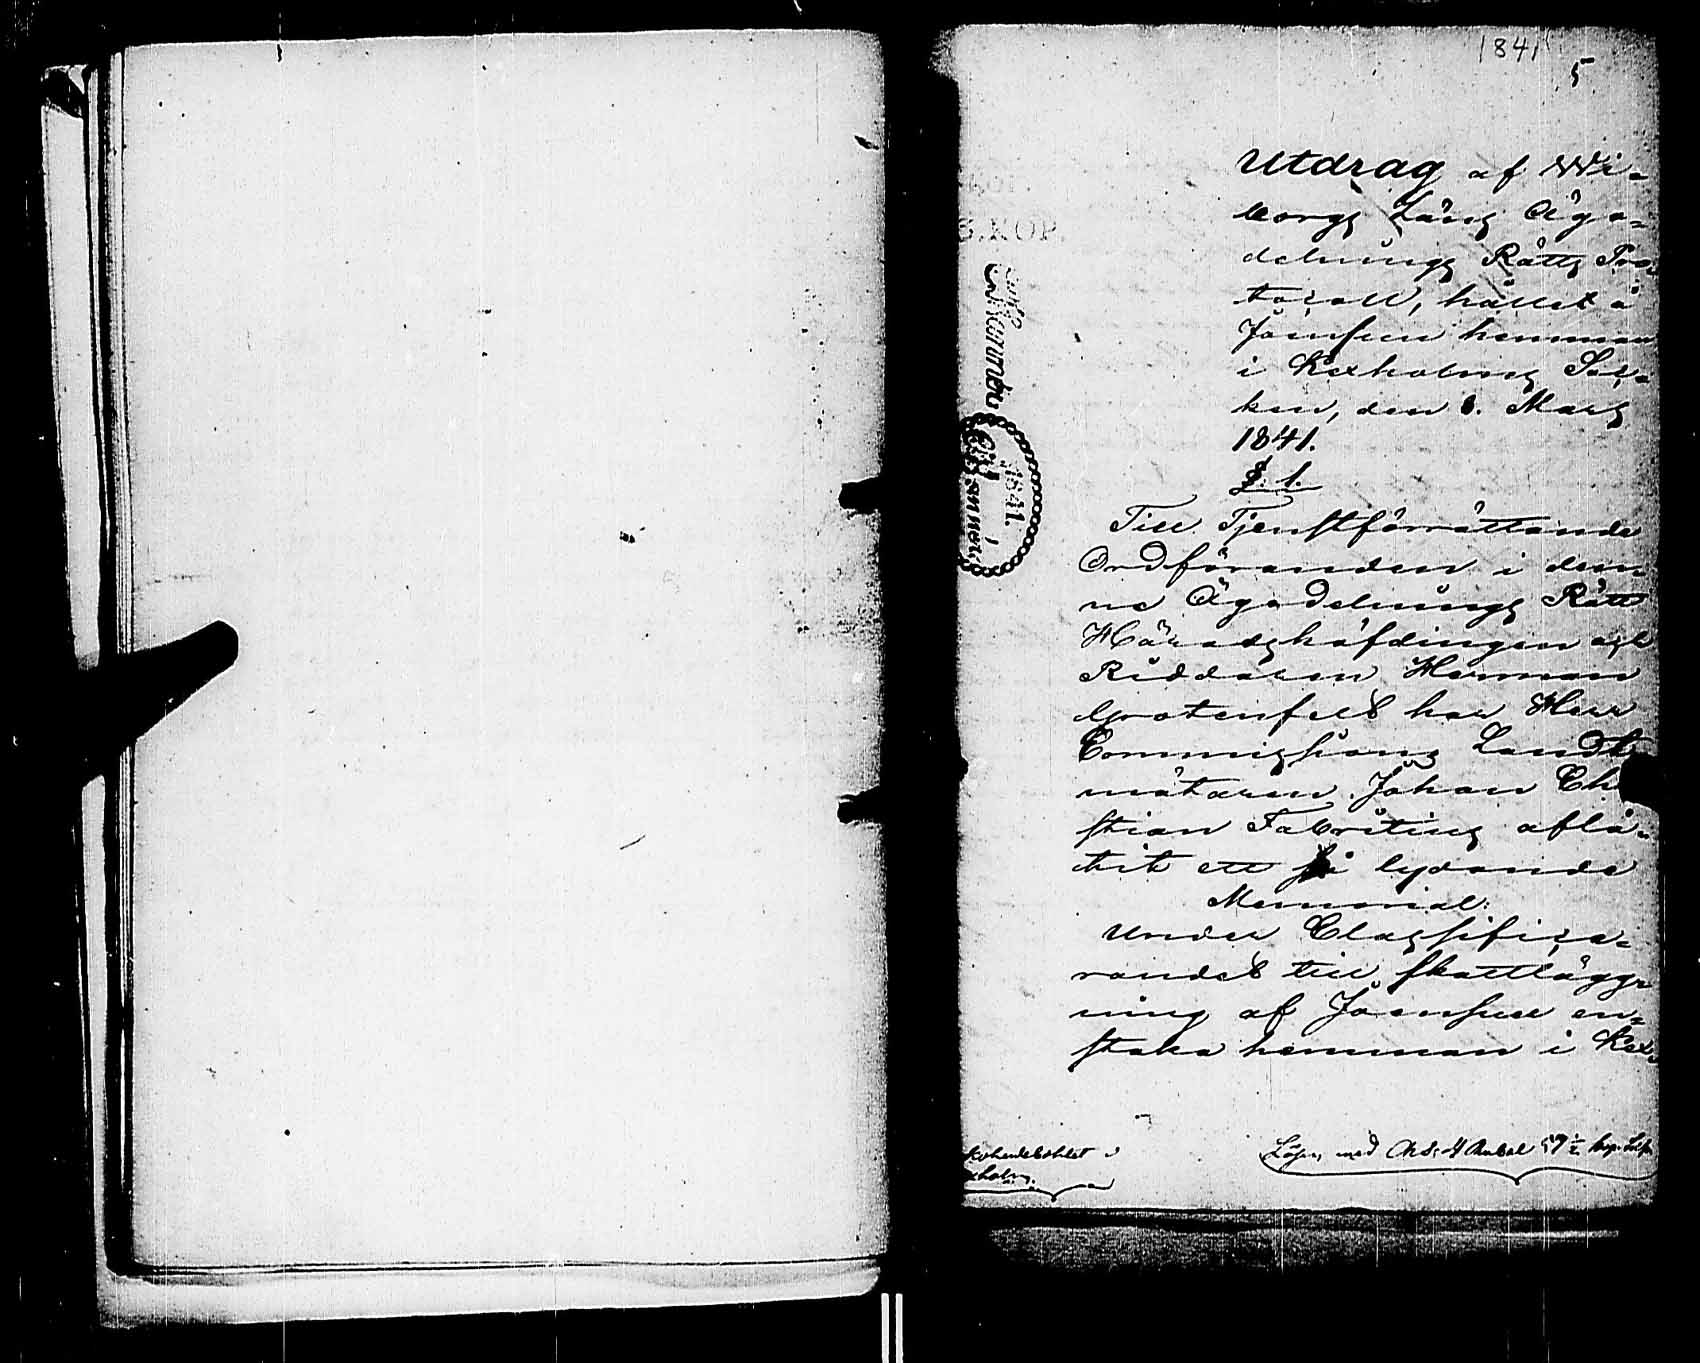 1841
5.
Utdrag af Wi-
borgs Läns Ägo-
delnings Rätts Pro-
tocoll, hållet å
Jäinseen hemman
i Kexholms Soc-
ken, den 8. Mars
1841.
§. 1.
Till Tjenstförrättande
Ordföranden i den-
ne Ägodelnings Rätt
Häradshöfdingen och
Riddaren Herman
Grotenfelt har Herr
Commissions Landt-
mätaren Johan Chri
stian Fabritius aflå-
tit ett så lydande
Memorial:
Under Classifice-
randet till skattlägg-
ning af Jäinseen en-
staka hemman i Kex-
S. KOP.
1841.
Lösen med 4 Rubel 57½ kop. Silfv